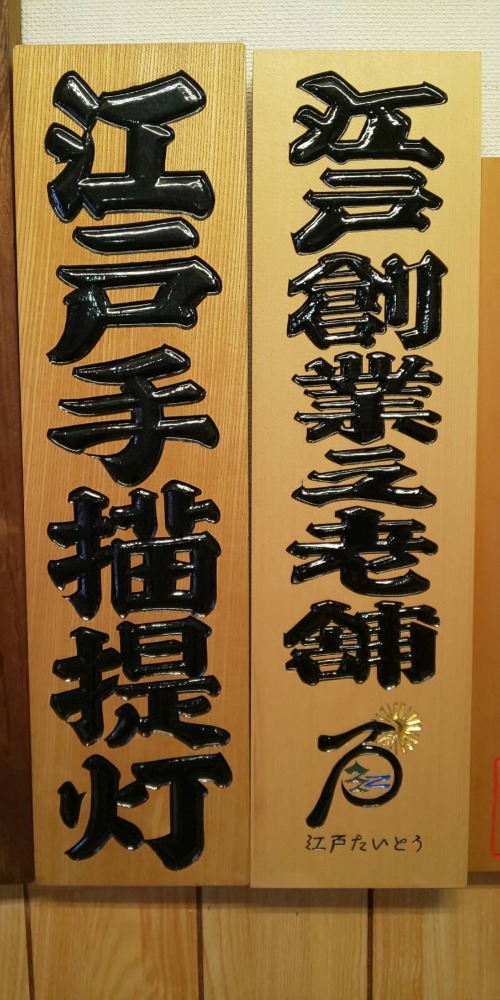 江戸創業之老舗
江戸たいとう
江戸手描提灯